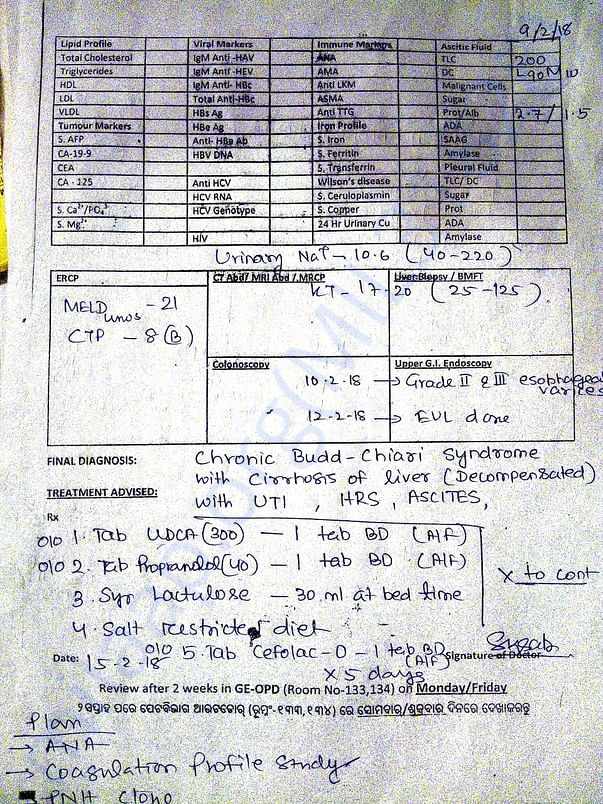 9/2/18
Lipid Profile Viral Markers Immune Markers Ascitic Fluid
Total Cholesterol IgM Anti -HAV ANA TLC 200
Triglycerides IgM Anti -HEV AMA DC L90 N 10
HDL IgM Anti- HBc Anti LKM Malignant Cells
LDL Total Anti-HBc ASMA Sugar
VLDL HBs Ag Anti TTG Prot/Alb 2.7/1.5
Tumour Markers HBe Ag Iron Profile ADA
S. AFP Anti- HBe Ab S. Iron SAAG
CA-19-9 HBV DNA S. Ferritin Amylase
CEA S. Transferrin Pleural Fluid
CA - 125 Anti HCV Wilson's disease TLC/ DC
HCV RNA S. Ceruloplasmin Sugar
S. Ca²⁺/PO₄³⁻ HCV Genotype S. Copper Prot
S. Mg²⁺ 24 Hr Urinary Cu ADA
HIV Amylase
Urinary Na⁺ - 10.6 (40-220)
ERCP CT Abd/ MRI Abd /.MRCP Liver Biopsy / BMFT
K⁺ - 17.20 (25-125)
MELD UNOS - 21
CTP - 8 (B)
Colonoscopy Upper G.I. Endoscopy
10-2-18 → Grade II & III esophageal varices
12-2-18 → EVL done
FINAL DIAGNOSIS: Chronic Budd-Chiari Syndrome
with Cirrhosis of liver (Decompensated)
TREATMENT ADVISED: with UTI, HRS, ASCITES,
Rx
010 1. Tab UDCA (300) - 1 tab BD (A/F)
010 2. Tab Propranolol (40) - 1 tab BD (A/F)
X to cont
3. Syr Lactulose - 30 ml at bed time
4. Salt restricted diet
010 5. Tab Cefolac-O - 1 tab BD (A/F)
Date: 15-2-18 Signature of Doctor
X 5 days
Review after 2 weeks in GE-OPD (Room No-133,134) on Monday/Friday
୨ ସପ୍ତାହ ପରେ ପେଟବିଭାଗ ଆଉଟଡୋର (ରୁମ୍-୧୩୩,୧୩୪) ରେ ସୋମବାର/ଶୁକ୍ରବାର ଦିନରେ ଦେଖାଇବେ
Plan
→ ANA
→ Coagulation Profile Study
PNH Clone